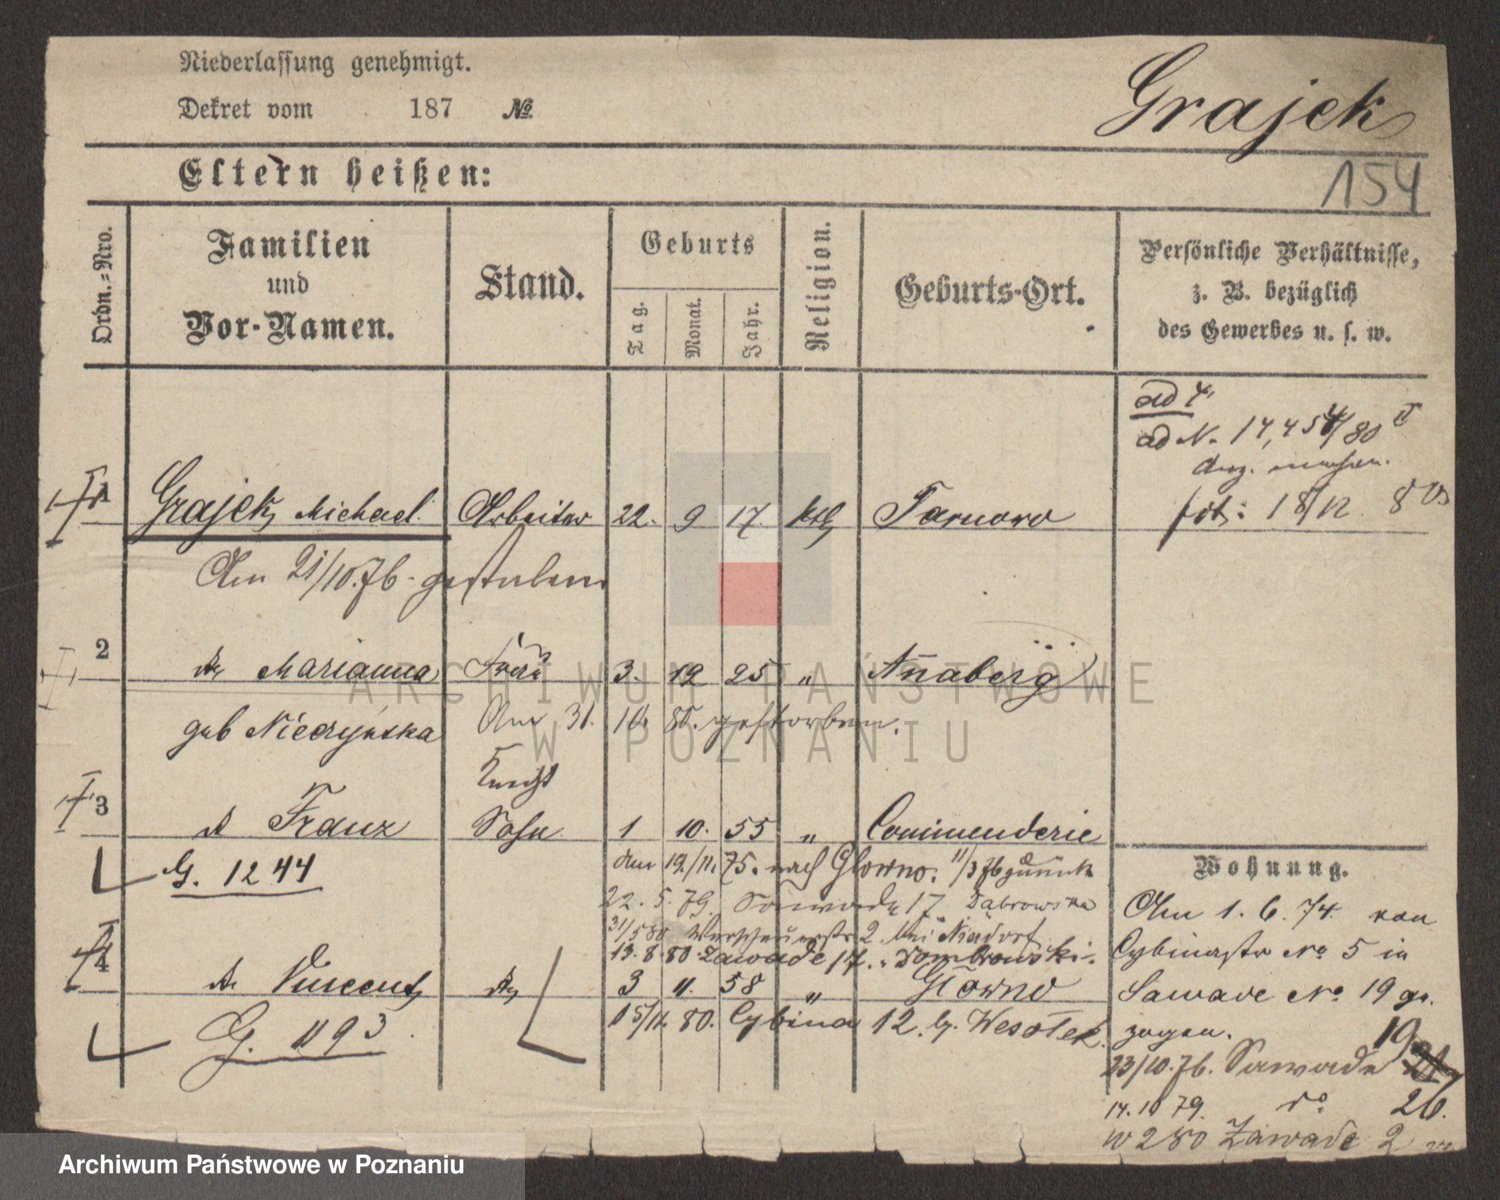 Niederlassung genehmigt.
Dekret vom 187 №
Grajek
154
Eltern heißen:
Ordn.-Nro.
Familien und Vor-Namen.
Stand.
Geburts
Tag.
Monat.
Jahr.
Religion.
Geburts-Ort.
Persönliche Verhältnisse, z. B. bezüglich des Gewerbes u. s. w.
ad 4
ad N. 17,454/80 II
1 Grajek Michael Arbeiter 22. 9 17. kth Tarnowo
18/12 80
Am 21/10.76. gestorben
2 do Marianna Frau 3. 12 25 " Annaberg
geb Nieczyńska Am 31. 10. 80. gestorben.
Knecht
3 do Franz Sohn 1 10. 55 " Commenderie
G. 1244
am 19./11. 75. nach Glowno. 11/3 76 zurück
22. 5. 79. Sawade 17. Dąbrowska
31/5 80 2. bei
13. 8. 80. Zawade 17. Dombrowski.
4 do Vincent do 3 11. 58 " Glowno
G. 1193
15/11. 80. Cybina 12. b. Wesołek.
Wohnung.
Am 1. 6. 74. von
Cybinastr No 5 in
Sawade No 19 ge-
zogen. 19
23/10. 76. Sawade
14. 10 79. do 26.
10 2 80 Zawade 2
ARCHIWUM PAŃSTWOWE
W POZNANIU
Archiwum Państwowe w Poznaniu